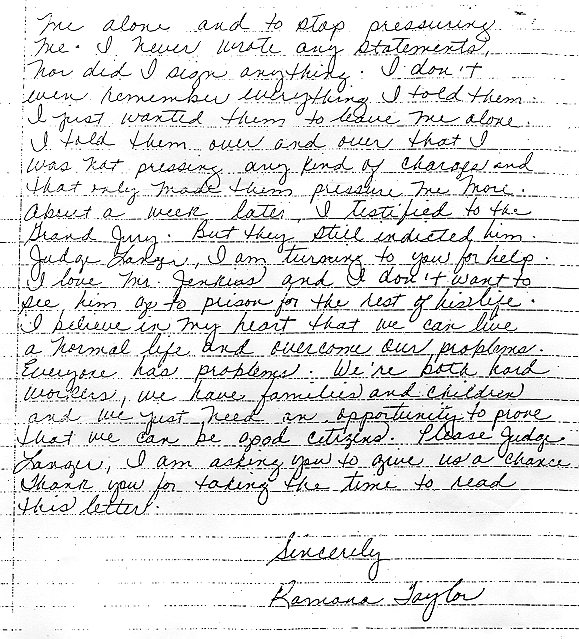 me alone and to stop pressuring
me. I never wrote any statements,
nor did I sign anything. I don't
even remember everything I told them.
I just wanted them to leave me alone.
I told them over and over that I
was not pressing any kind of charges and
that only made them pressure me more.
About a week later, I testified to the
Grand Jury. But they still indicted him.
Judge Langer, I am turning to you for help.
I love Mr. Jenkins and I don't want to
see him go to prison for the rest of his life.
I believe in my heart that we can live
a normal life and overcome our problems.
Everyone has problems. We're both hard
workers, we have families and children
and we just need an opportunity to prove
that we can be good citizens. Please Judge
Langer, I am asking you to give us a chance
Thank you for taking the time to read
this letter.
Sincerely
Ramona Taylor